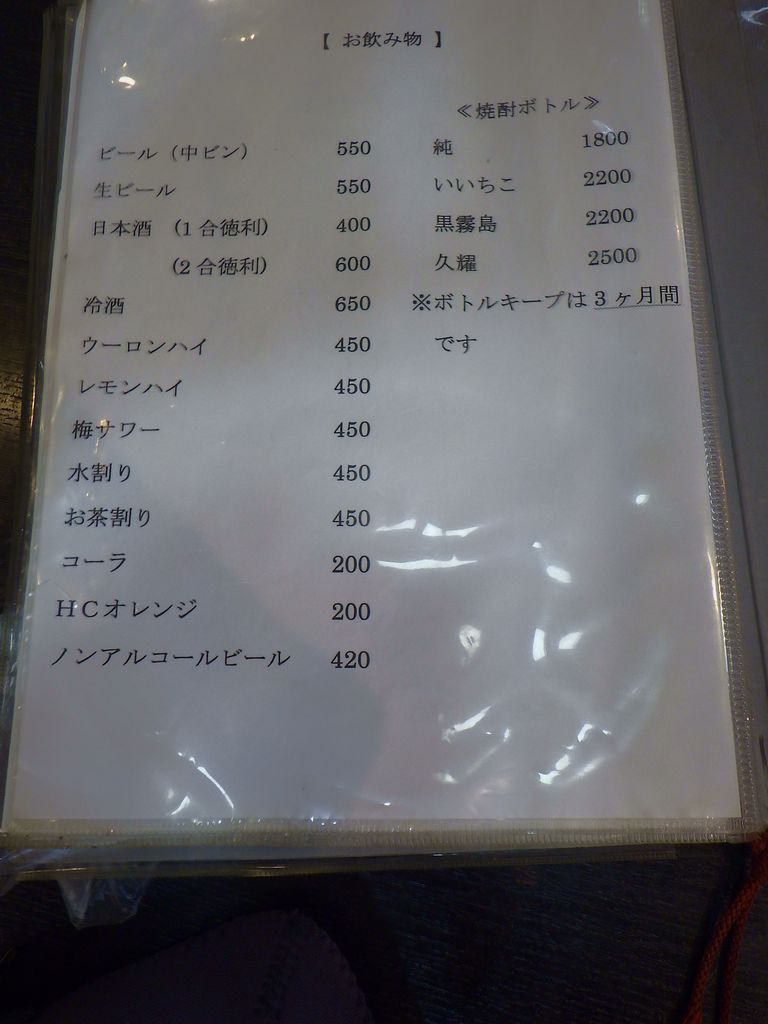 【 お飲み物 】
ビール（中ビン） 550
生ビール 550
日本酒 （1合徳利） 400
（2合徳利） 600
冷酒 650
ウーロンハイ 450
レモンハイ 450
梅サワー 450
水割り 450
お茶割り 450
コーラ 200
ＨＣオレンジ 200
ノンアルコールビール 420
≪焼酎ボトル≫
純 1800
いいちこ 2200
黒霧島 2200
久耀 2500
※ボトルキープは３ヶ月間
です